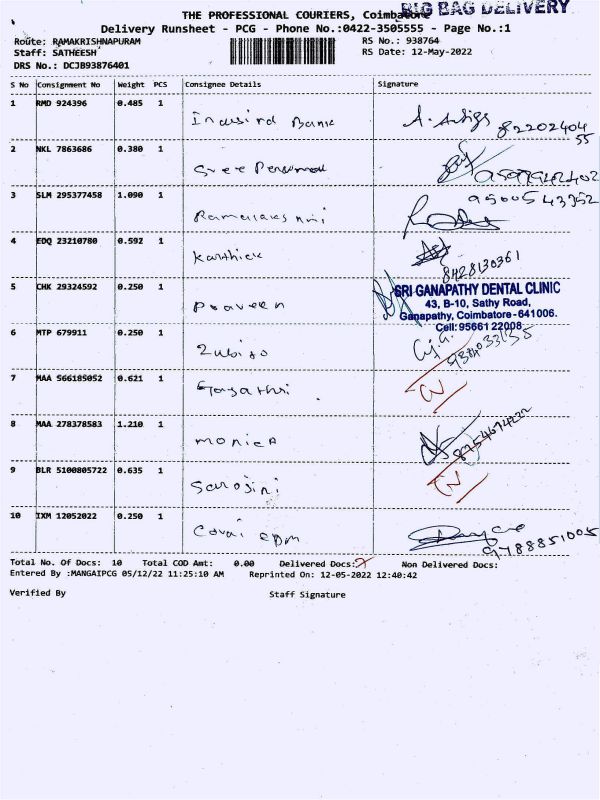 BIG BAG DELIVERY
THE PROFESSIONAL COURIERS, Coimbatore
Delivery Runsheet - PCG - Phone No.:0422-3505555 - Page No.:1
Route: RAMAKRISHNAPURAM RS No.: 938764
Staff: SATHEESH RS Date: 12-May-2022
DRS No.: DCJB93876401
S No Consignment No Weight PCS Consignee Details Signature
1 RMD 924396 0.485 1
Indusind Bank
2 NKL 7863686 0.380 1
Sree Personnal
3 SLM 295377458 1.090 1
95005 43352
4 EDQ 23210780 0.592 1
Karthick 8428130361
5 CHK 29324592 0.250 1
Praveen
SRI GANAPATHY DENTAL CLINIC
43, B-10, Sathy Road,
Ganapathy, Coimbatore-641006.
Cell: 95661 22008
6 MTP 679911 0.250 1
7 MAA 566185052 0.621 1
Gayathri
8 MAA 278378583 1.210 1
monica
9 BLR 5100805722 0.635 1
Sarojini
10 IXM 12052022 0.250 1
Covai 9788851005
Total No. Of Docs: 10 Total COD Amt: 0.00 Delivered Docs: Non Delivered Docs:
Entered By :MANGAIPCG 05/12/22 11:25:10 AM Reprinted On: 12-05-2022 12:40:42
Verified By Staff Signature